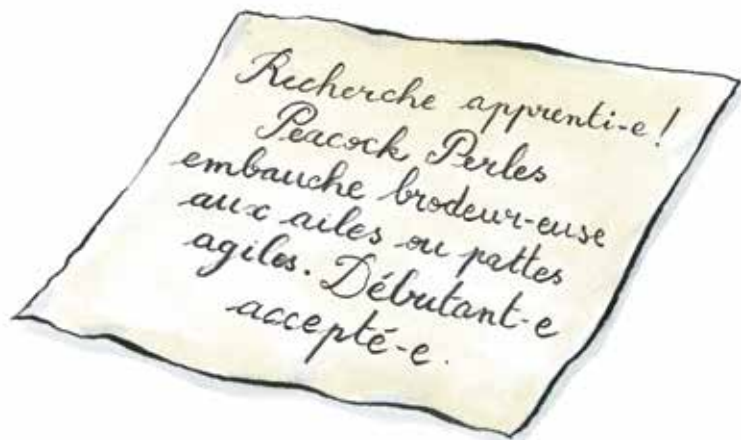 Recherche apprenti-e !
Peacock Perles
embauche brodeur-euse
aux ailes ou pattes
agiles. Débutant-e
accepté-e.